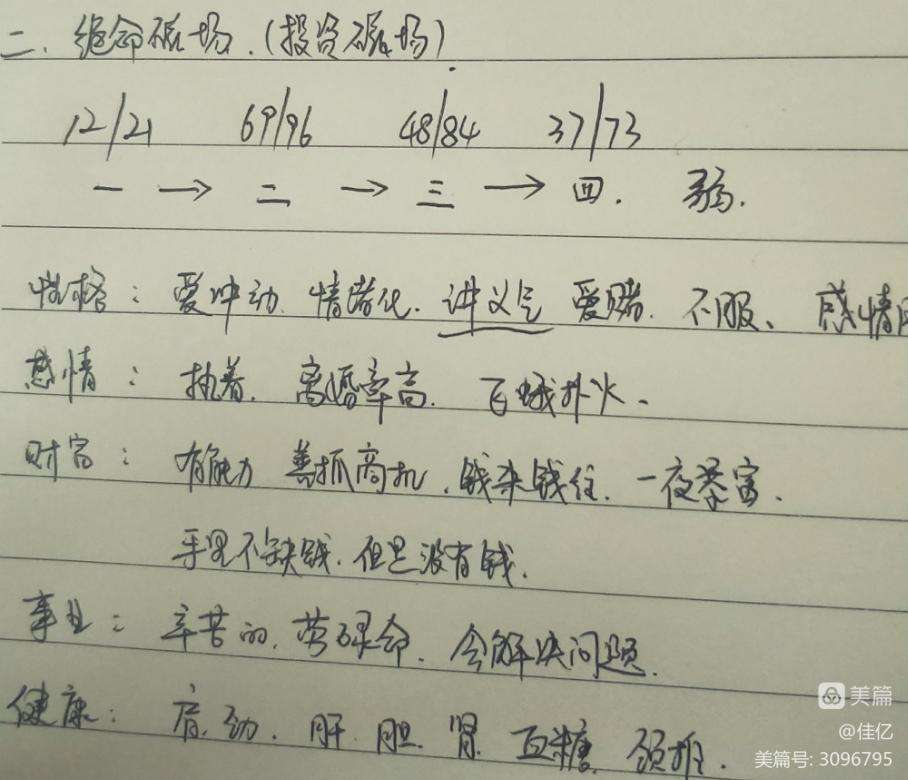 二、绝命磁场.(投资磁场)
12/21 69/96 48/84 37/73
一 → 二 → 三 → 四. 弱.
性格: 爱冲动 情绪化. 讲义气 爱赌. 不服、感情
感情: 执着. 离婚率高. 飞蛾扑火、
财富: 有能力 善抓商机. 钱来钱往. 一夜暴富.
手里不缺钱. 但是没有钱.
事业: 辛苦的. 劳碌命. 会解决问题.
健康: 肩. 肝. 胆. 肾 血糖. 颈椎.
美篇
@佳亿
美篇号: 3096795